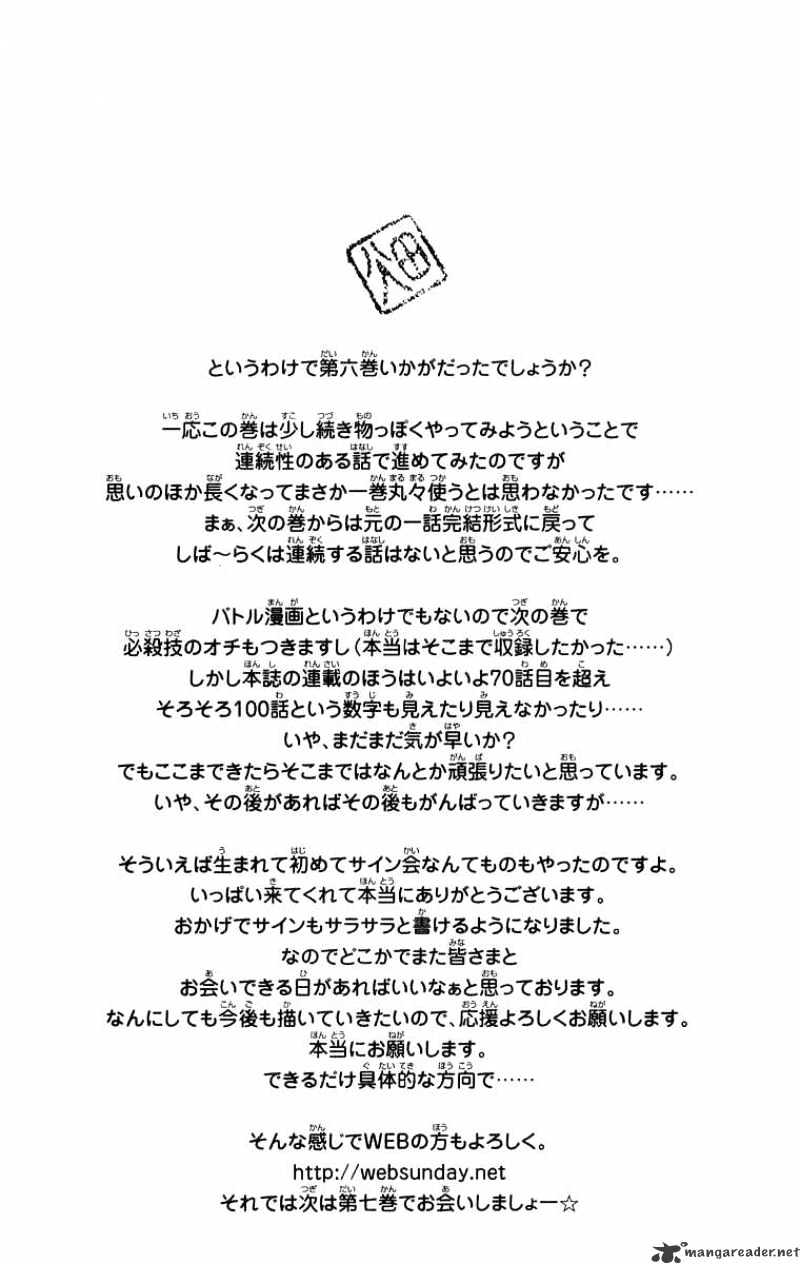 というわけで第六巻いかがだったでしょうか？
一応この巻は少し続き物っぽくやってみようということで
連続性のある話で進めてみたのですが
思いのほか長くなってまさか一巻丸々使うとは思わなかったです……
まぁ、次の巻からは元の一話完結形式に戻って
しば〜らくは連続する話はないと思うのでご安心を。
バトル漫画というわけでもないので次の巻で
必殺技のオチもつきますし（本当はそこまで収録したかった……）
しかし本誌の連載のほうはいよいよ70話目を超え
そろそろ100話という数字も見えたり見えなかったり……
いや、まだまだ気が早いか？
でもここまできたらそこまではなんとか頑張りたいと思っています。
いや、その後があればその後もがんばっていきますが……
そういえば生まれて初めてサイン会なんてものもやったのですよ。
いっぱい来てくれて本当にありがとうございます。
おかげでサインもサラサラと書けるようになりました。
なのでどこかでまた皆さまと
お会いできる日があればいいなぁと思っております。
なんにしても今後も描いていきたいので、応援よろしくお願いします。
本当にお願いします。
できるだけ具体的な方向で……
そんな感じでWEBの方もよろしく。
http://websunday.net
それでは次は第七巻でお会いしましょー☆
mangareader.net